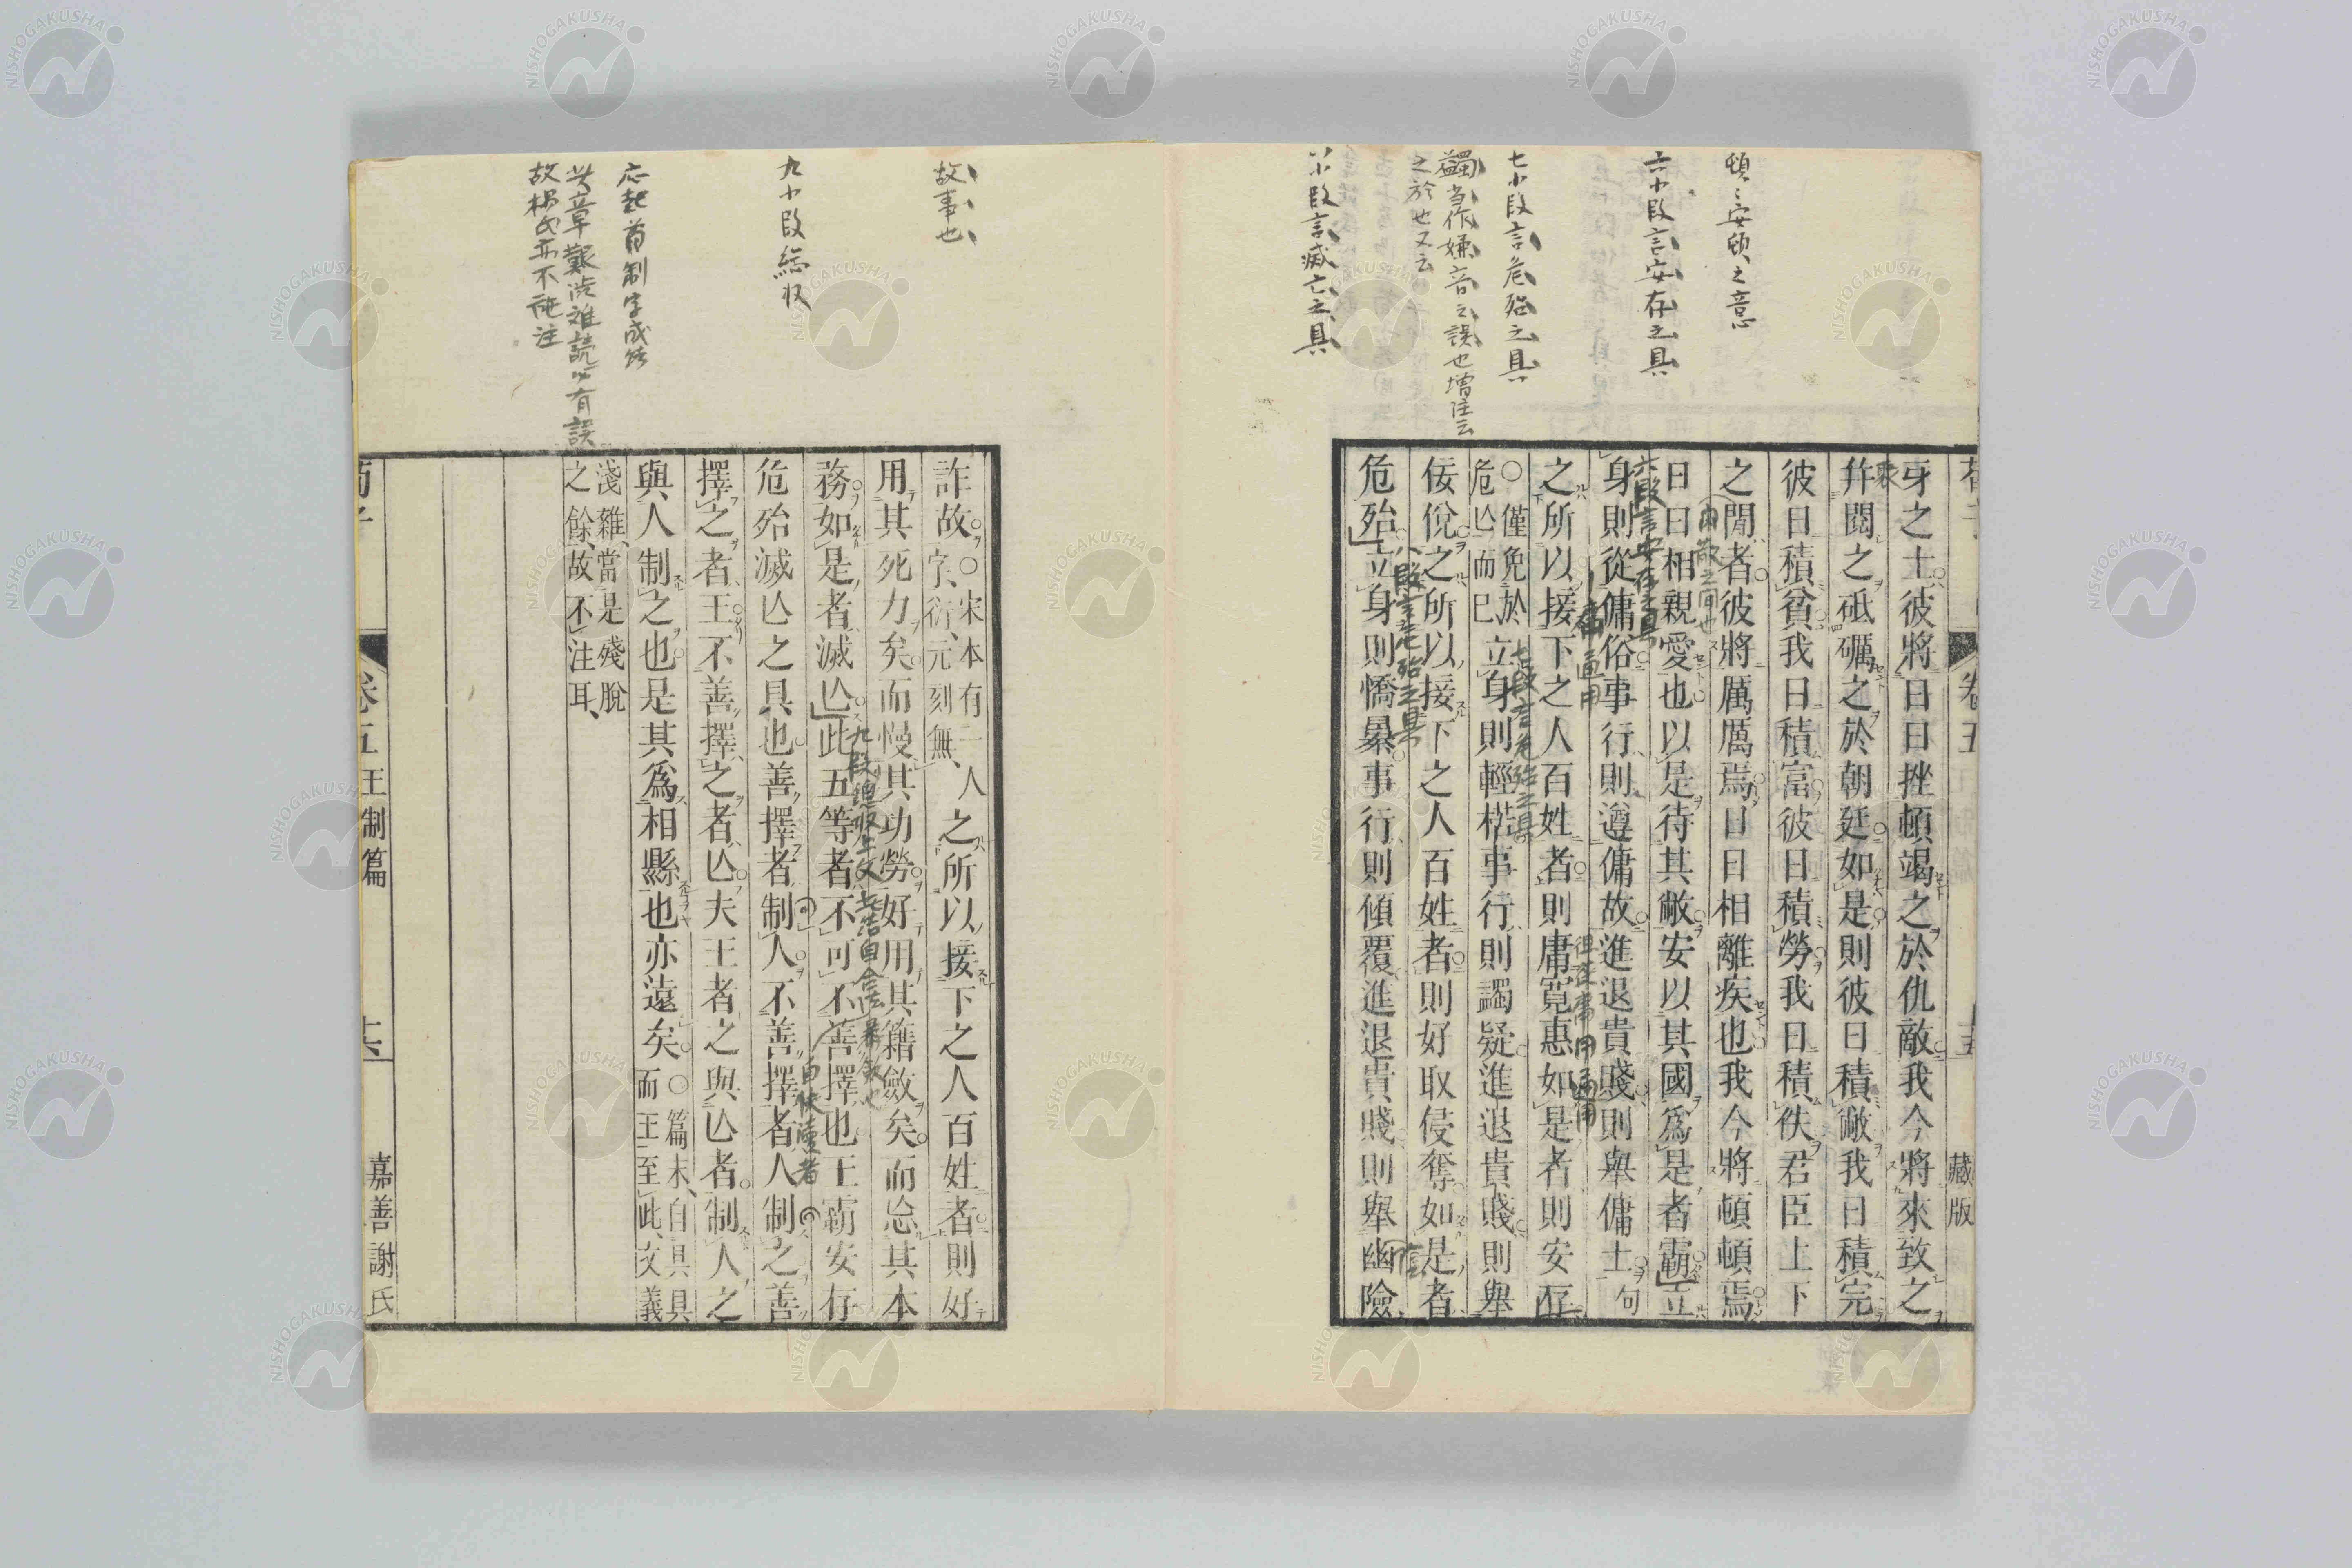 頓〻安頓之意
六小段言安存之具
七小段言危殆之具
蠲当作嫌音之誤也増注云
之於也又云
八小段言滅亡之具
藏版
牙之士彼將日日挫頓竭之於仇敵我今將來致之
幷閱之砥礪之於朝廷如是則彼日積敝我日積完
彼日積貧我日積富彼日積勞我日積佚君臣上下
之閒者彼將厲厲焉日日相離疾也我今將頓頓焉
日日相親愛也以是待其敝安以其國爲是者霸立
身則從傭俗事行則遵傭故進退貴賤則舉傭士句
之所以接下之人百姓者則庸寬惠如是者則安存
○僅免於
危亾而已立身則輕楛事行則蠲疑進退貴賤則舉
佞侻之所以接下之人百姓者則好取侵奪如是者
危殆立身則憍暴事行則傾覆進退貴賤則舉幽險
六段言安存之具
七段言危殆之具
八段言危殆之具
故事也
九小段総収
応起首制字成篇
故楊氏亦不施注
詐故○宋本有一
字衍元刻無人之所以接下之人百姓者則好
用其死力矣而慢其功勞好用其籍斂矣而忘其本
務如是者滅亾此五等者不可不善擇也王霸安存
危殆滅亾之具也善擇者制人不善擇者人制之善
擇之者王不善擇之者亾夫王者之與亾者制人之
與人制之也是其爲相縣也亦遠矣○篇末自具具
而王至此文義
淺雜當是殘脫
之餘故不注耳
卷五
王制篇
十六
嘉善謝氏
NISHOGAKUSHA